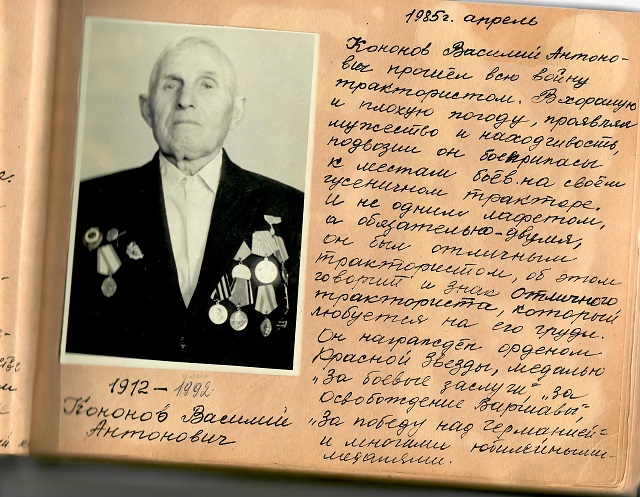 1985г. апрель
Кононов Василий Антоно-
вич прошёл всю войну
трактористом. В хорошую
и плохую погоду, проявляя
мужество и находчивость,
подвозил он боеприпасы
к местам боёв на своём
гусеничном тракторе.
И не одним лафетом,
а обязательно-двумя,
он был отличным
трактористом, об этом
говорит и знак отличного
тракториста, который
любуется на его груди.
Он награждён орденом
Красной Звезды, медалью
„За боевые заслуги", „За
освобождение Варшавы",
„За победу над Германией"
и многими юбилейными
медалями.
1912 – 1992
Кононов Василий
Антонович